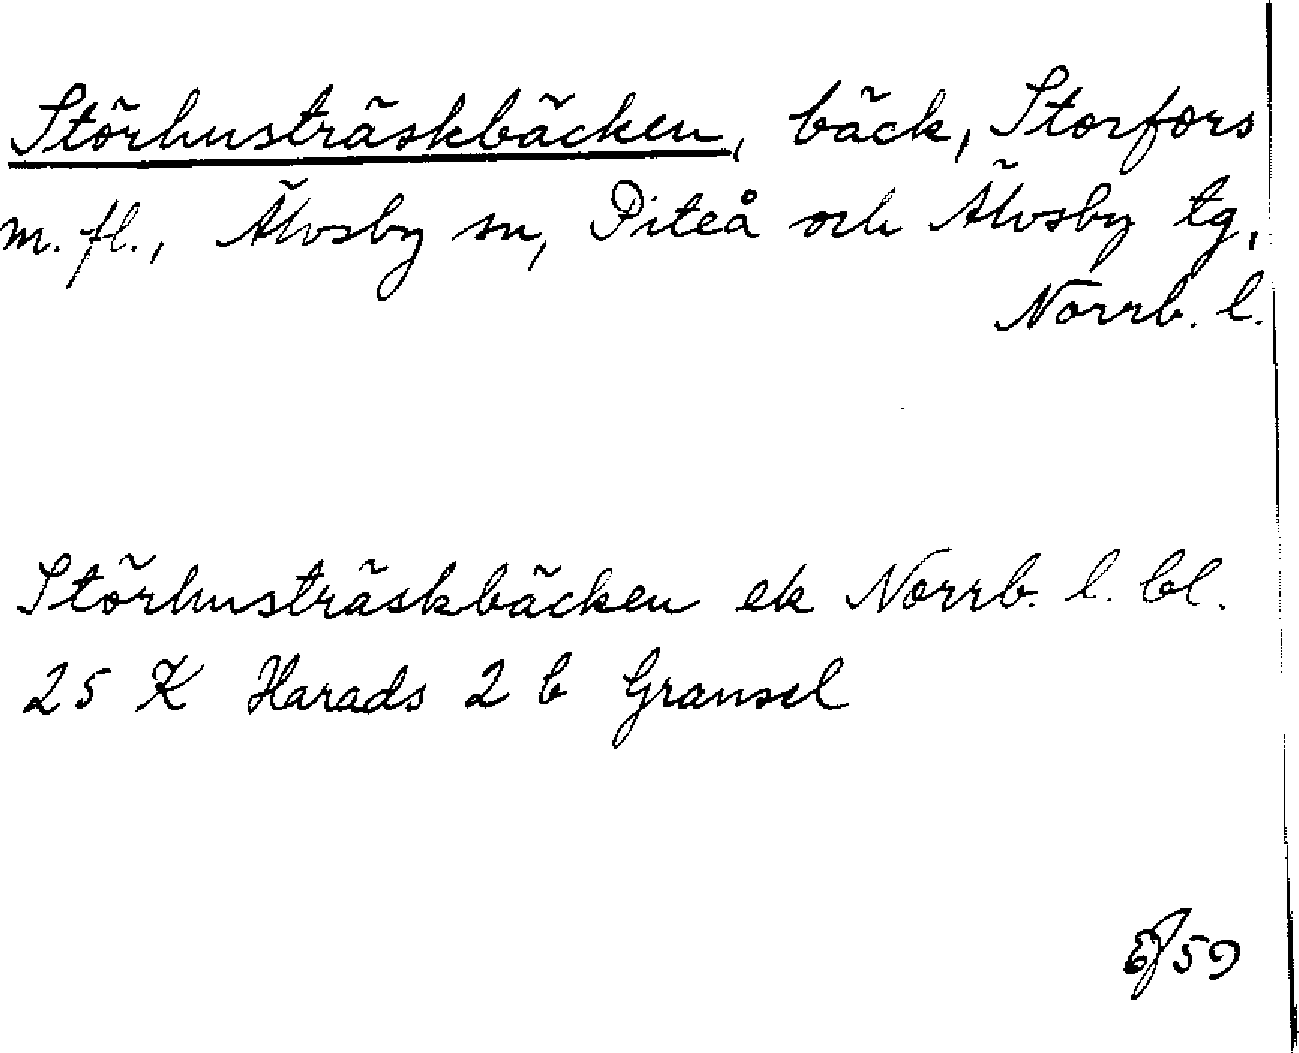 Störhusträskbäcken, bäck, Storfors
m. fl., Älvsby sn, Piteå och Älvsby tg,
Norrb. l.
Störhusträskbäcken ek Norrb. l. bl.
25 K Harads 2 b Gransel
6/59